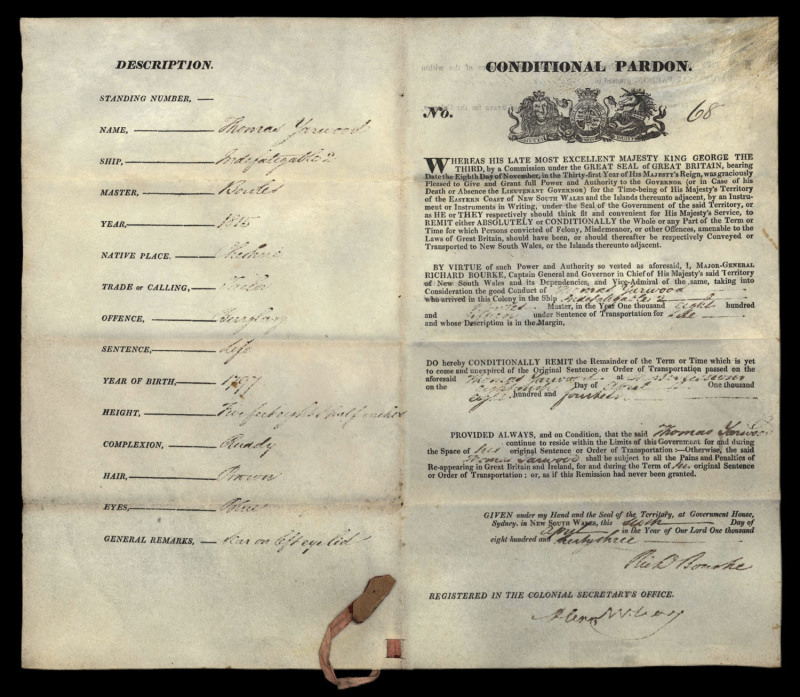 DESCRIPTION.
STANDING NUMBER, —
NAME, — Thomas Yarwood
SHIP, — Indefatigable 2
MASTER, — Bowles
YEAR, — 1815
NATIVE PLACE. — Cheshire
TRADE or CALLING, —
OFFENCE, — Burglary
SENTENCE, — Life
YEAR OF BIRTH, — 1797
HEIGHT, — Five feet eight & half inches
COMPLEXION, — Ruddy
HAIR, — Brown
EYES, — Blue
GENERAL REMARKS, — Scar on left eye lid
CONDITIONAL PARDON.
No. 68
WHEREAS HIS LATE MOST EXCELLENT MAJESTY KING GEORGE THE
THIRD, by a Commission under the GREAT SEAL of GREAT BRITAIN, bearing
Date the Eighth Day of November, in the Thirty-first Year of His MAJESTY's Reign, was graciously
Pleased to Give and Grant full Power and Authority to the GOVERNOR (or in Case of his
Death or Absence the LIEUTENANT GOVERNOR) for the Time-being of His Majesty's Territory
of the EASTERN COAST of NEW SOUTH WALES and the Islands thereunto adjacent, by an Instru-
ment or Instruments in Writing, under the Seal of the Government of the said Territory, or
as HE or THEY respectively should think fit and convenient for His Majesty's Service, to
REMIT either ABSOLUTELY or CONDITIONALLY the Whole or any Part of the Term or
Time for which Persons convicted of Felony, Misdemeanor, or other Offences, amenable to the
Laws of Great Britain, should have been, or should thereafter be respectively Conveyed or
Transported to New South Wales, or the Islands thereunto adjacent.
BY VIRTUE of such Power and Authority so vested as aforesaid, I, MAJOR-GENERAL
RICHARD BOURKE, Captain General and Governor in Chief of His Majesty's said Territory
of New South Wales and its Dependencies, and Vice-Admiral of the same, taking into
Consideration the good Conduct of Thomas Yarwood
who arrived in this Colony in the Ship Indefatigable 2
Bowles Master, in the Year One thousand eight hundred
and fifteen under Sentence of Transportation for Life
and whose Description is in the Margin,
DO hereby CONDITIONALLY REMIT the Remainder of the Term or Time which is yet
to come and unexpired of the Original Sentence or Order of Transportation passed on the
aforesaid Thomas Yarwood at
on the Day of One thousand
eight hundred and fourteen
PROVIDED ALWAYS, and on Condition, that the said Thomas Yarwood
continue to reside within the Limits of this Government for and during
the Space of his original Sentence or Order of Transportation :—Otherwise, the said
Thomas Yarwood shall be subject to all the Pains and Penalties of
Re-appearing in Great Britain and Ireland, for and during the Term of his original Sentence
or Order of Transportation; or, as if this Remission had never been granted.
GIVEN under my Hand and the Seal of the Territory, at Government House,
Sydney, in NEW SOUTH WALES, this sixth Day of
April in the Year of Our Lord One thousand
eight hundred and thirty three
Rich'd Bourke
REGISTERED IN THE COLONIAL SECRETARY'S OFFICE.